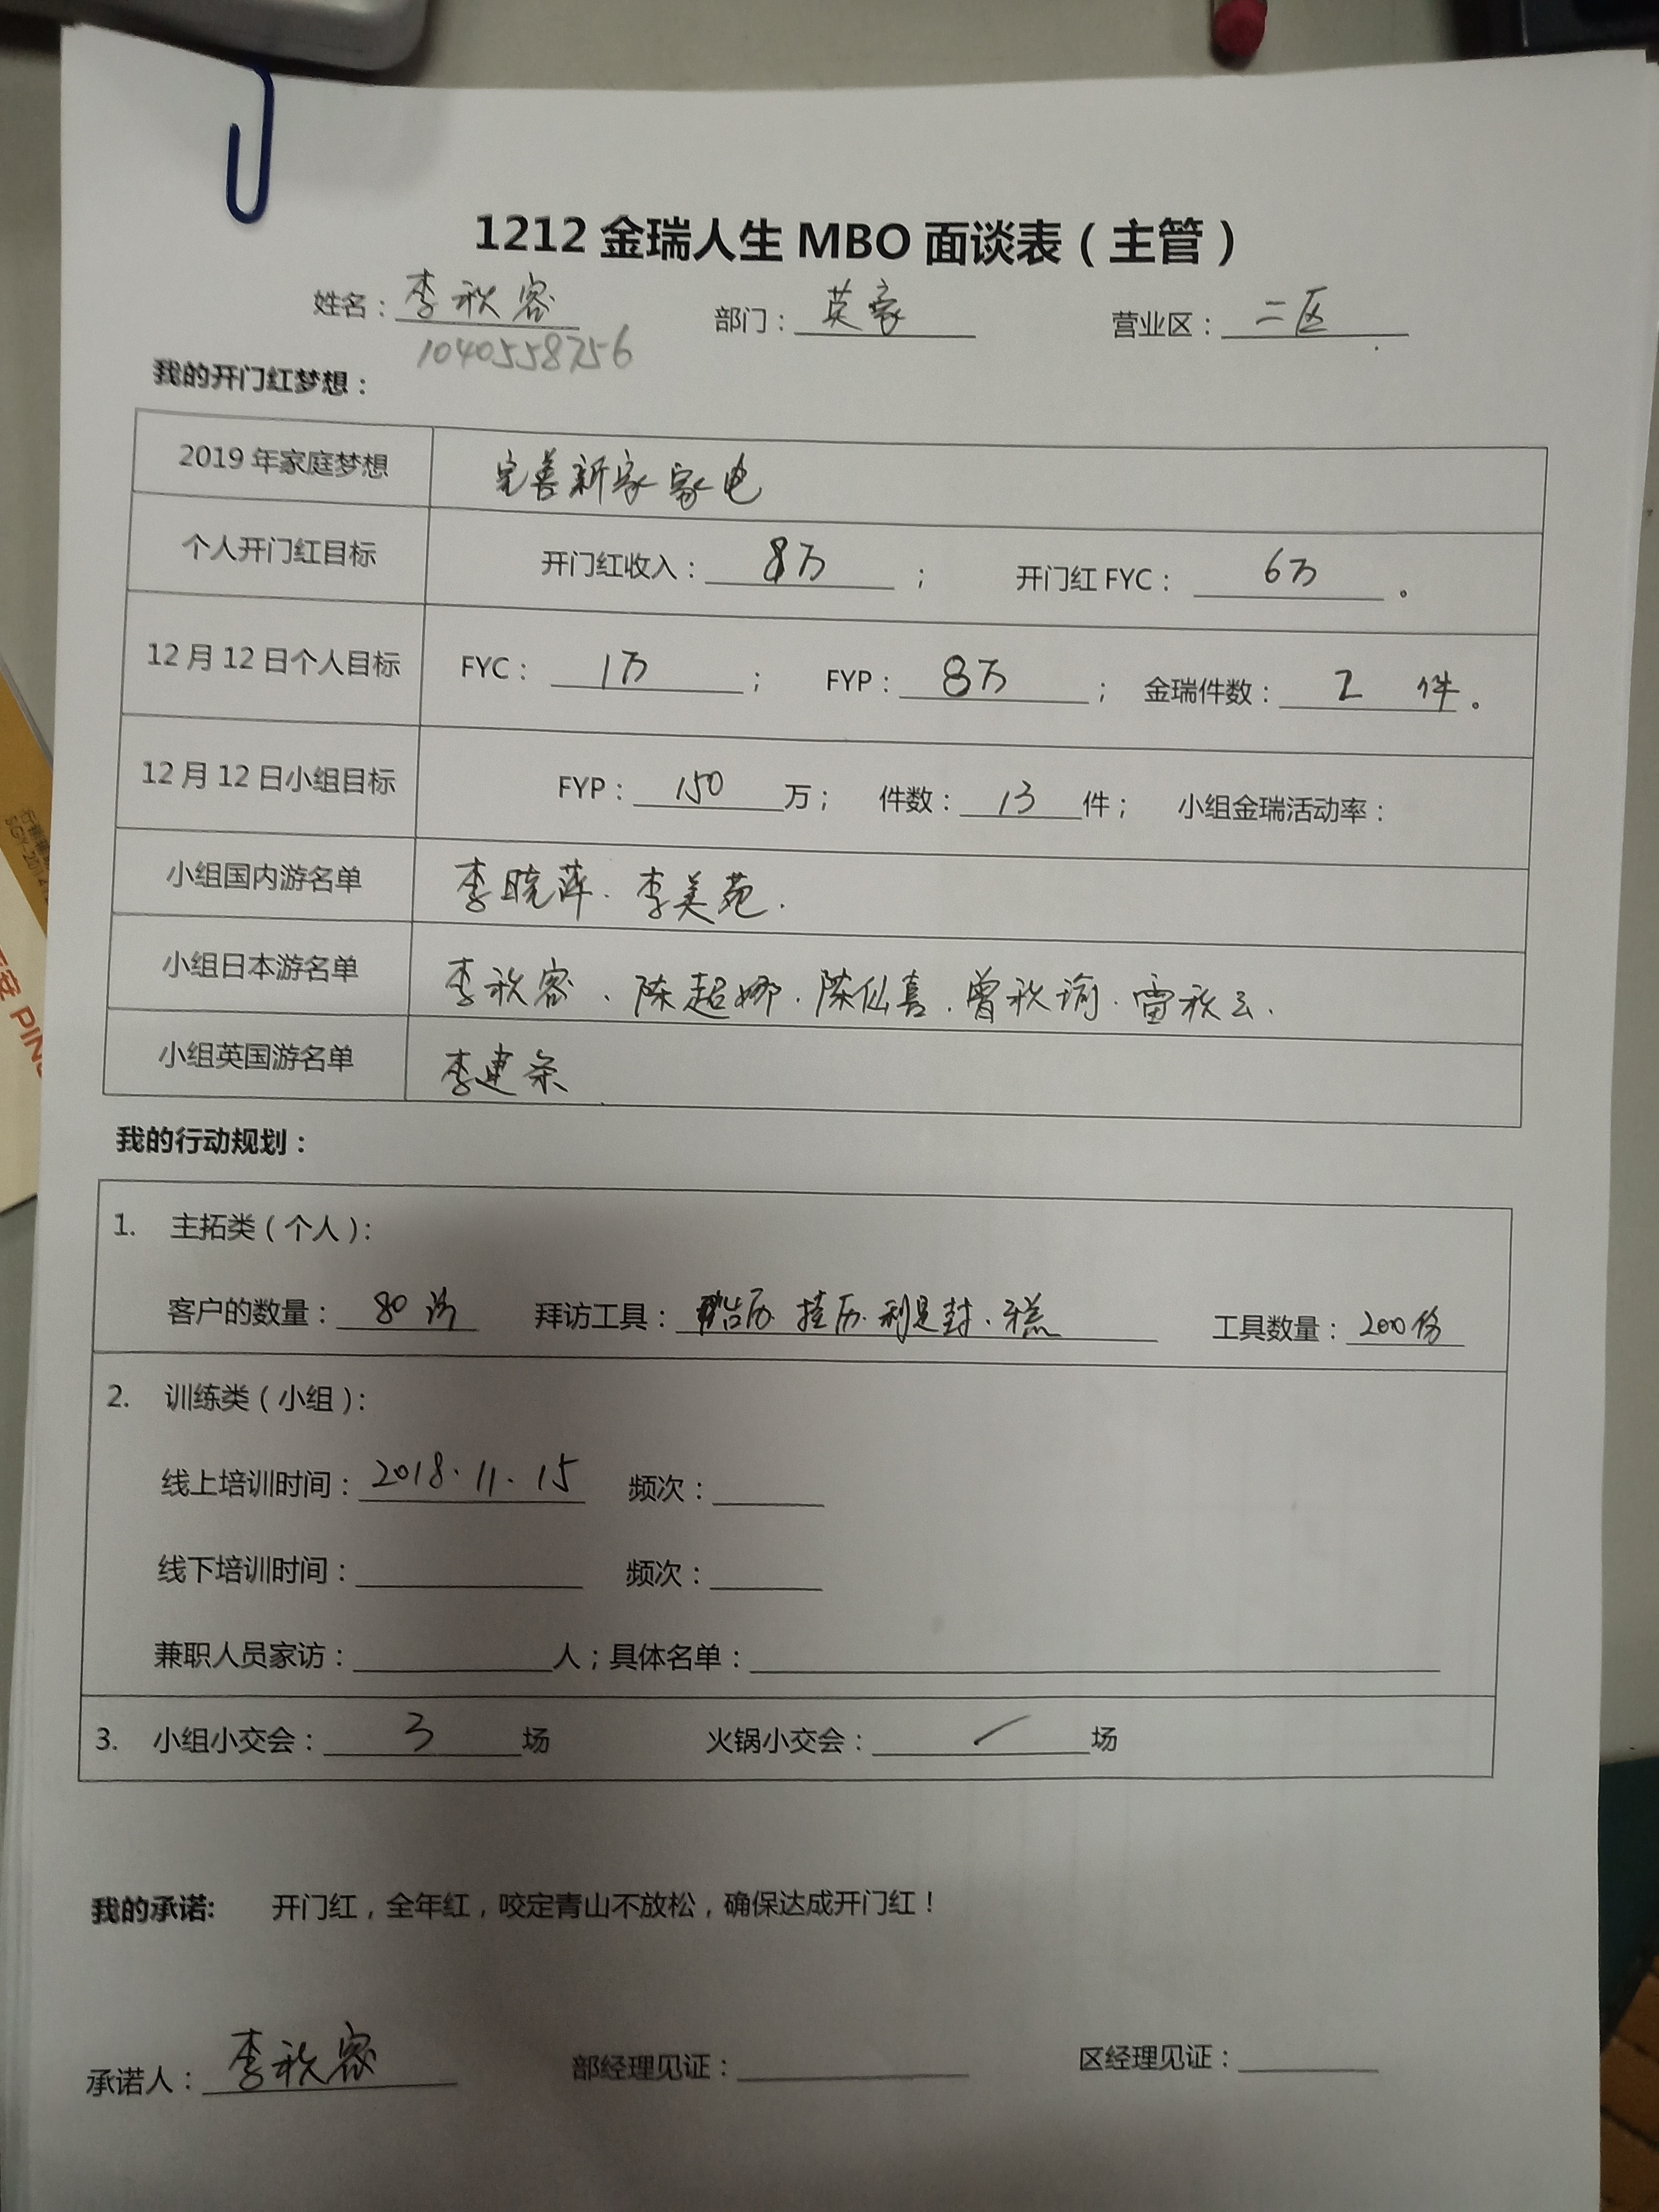 1212 金瑞人生 MBO 面谈表（主管）
姓名：李秋容 部门：英豪 营业区：二区
1040558756
我的开门红梦想：
2019 年家庭梦想 完善新家家电
个人开门红目标 开门红收入：8万； 开门红 FYC：6万。
12 月 12 日个人目标 FYC：1万； FYP：8万； 金瑞件数：2 件。
12 月 12 日小组目标 FYP：150万； 件数：13件； 小组金瑞活动率：
小组国内游名单 李晓萍、李美苑.
小组日本游名单 李秋容、陈超娜、陈仙喜、曾秋瑜、雷秋云.
小组英国游名单 李建
我的行动规划：
1. 主拓类（个人）：
客户的数量：80访 拜访工具：台历 挂历 利是封、年糕 工具数量：200份
2. 训练类（小组）：
线上培训时间：2018.11.15 频次：
线下培训时间： 频次：
兼职人员家访： 人；具体名单：
3. 小组小交会：3场 火锅小交会：/场
我的承诺: 开门红，全年红，咬定青山不放松，确保达成开门红！
承诺人：李秋容 部经理见证： 区经理见证：
PIN